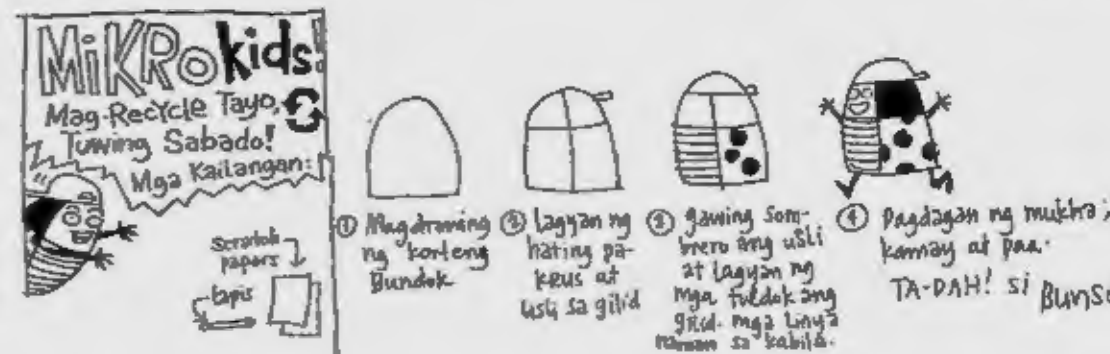 MiKRo kids!
Mag-Recycle Tayo,
Tuwing Sabado!
Mga Kailangan:
Scratch
papers
lapis
① Magdrowing
ng korteng
Bundok
② lagyan ng
hating pa-
krus at
usli sa gilid
③ gawing som-
brero ang usli
at lagyan ng
mga tuldok ang
gilid. mga linya
naman sa kabila.
④ Dagdagan ng mukha,
kamay at paa.
TA-DAH! Si